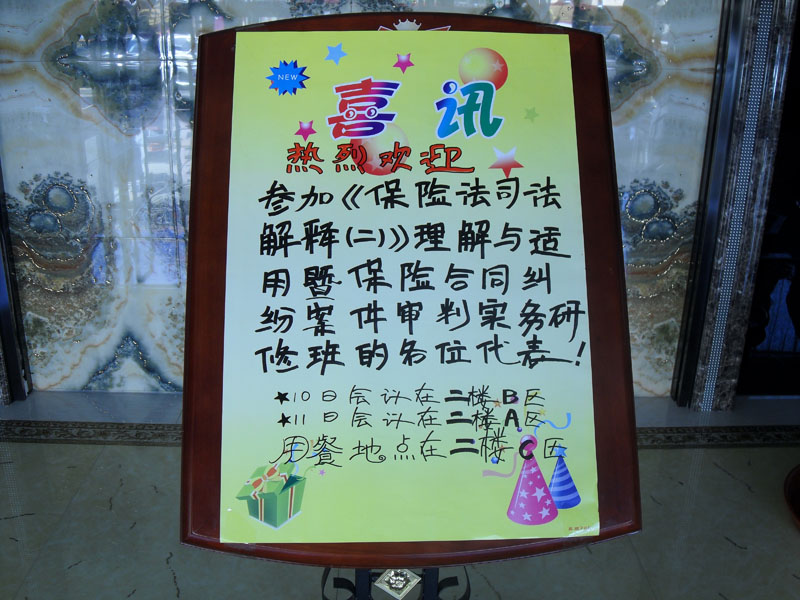 NEW
喜讯
热烈欢迎
参加《保险法司法
解释(二)》理解与适
用暨保险合同纠
纷案件审判实务研
修班的各位代表!
★10日会议在二楼B区
★11日会议在二楼A区
用餐地点在二楼C区